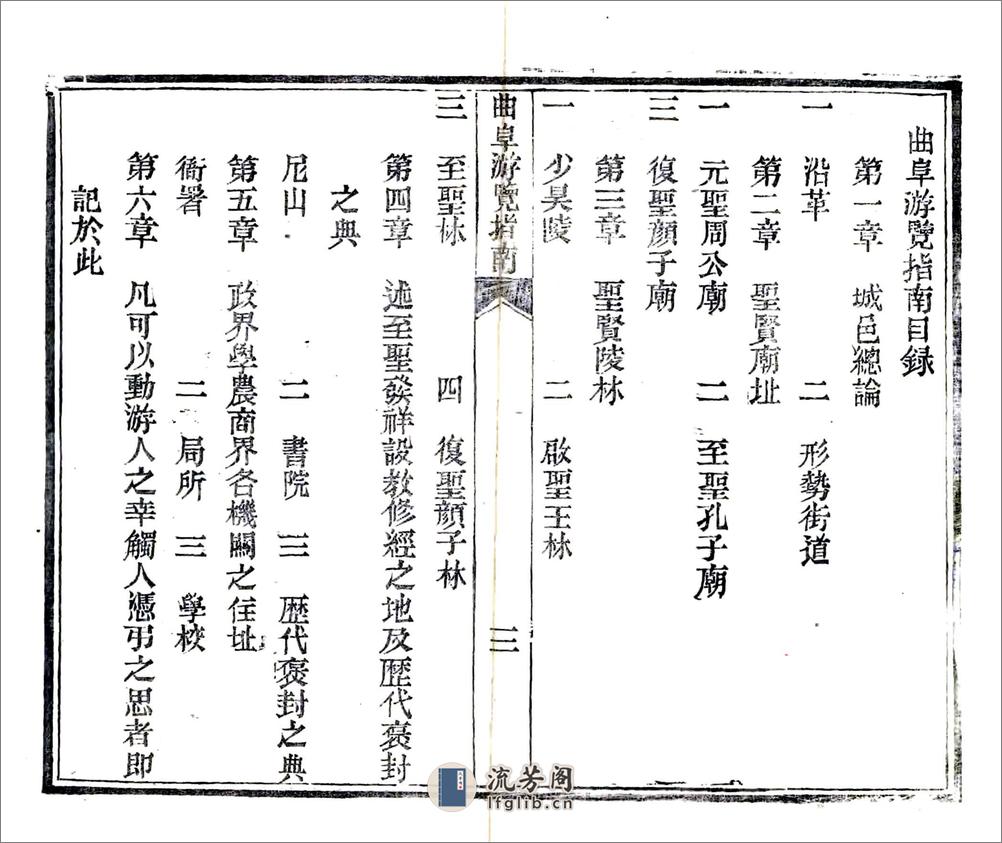 曲阜游覽指南目録
第一章 城邑總論
一 沿革 二 形勢街道
第二章 聖賢廟址
一 元聖周公廟 二 至聖孔子廟
三 復聖顔子廟
第三章 聖賢陵林
一 少昊陵 二 啟聖王林
曲阜游覽指南 三
三 至聖林 四 復聖顔子林
第四章 述至聖發祥設教修經之地及歷代褒封
之典
尼山 二 書院 三 歷代褒封之典
第五章 政界學農商界各機關之住址
衙署 二 局所 三 學校
第六章 凡可以動游人之幸觸人憑弔之思者即
記於此
流芳阁
lfglib.cn